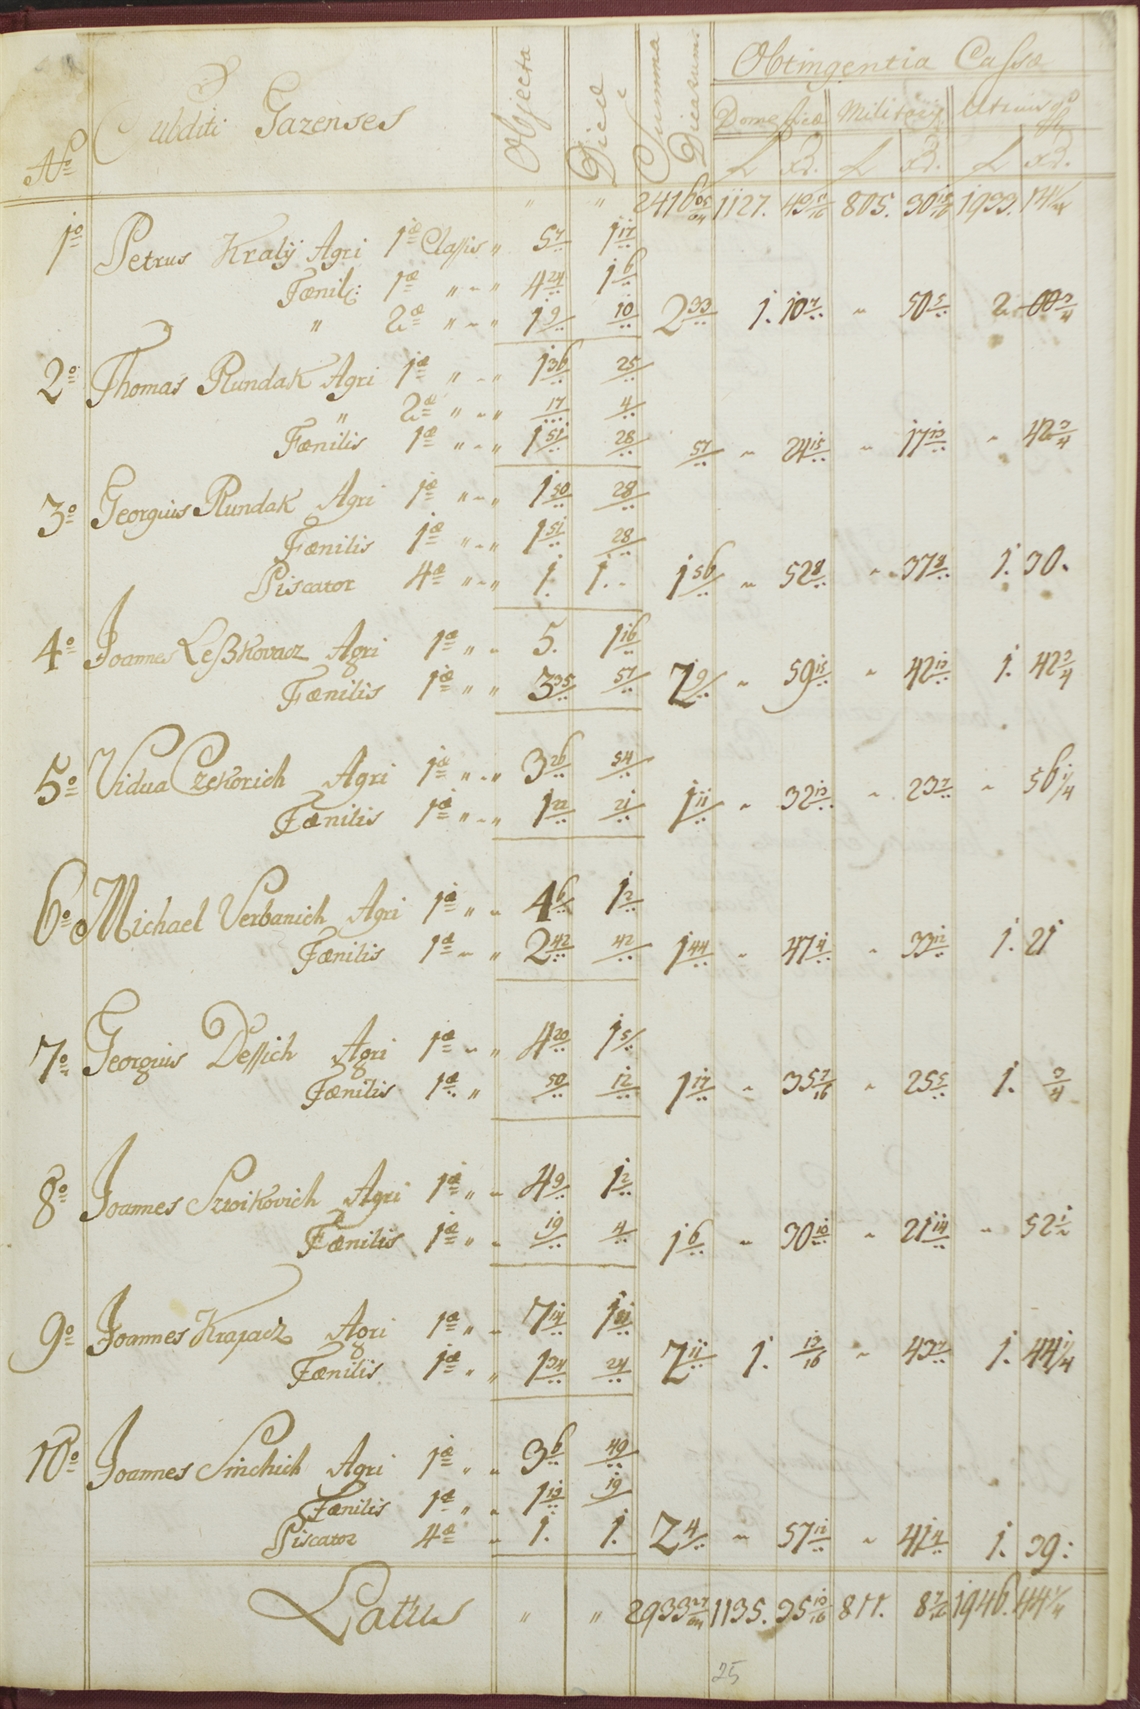 Nº Subditi Gazenses Objecta Dicæ Summa Dicarum Obtingentia Cassæ
Domesticæ Militaris Utriusq
f xd. f xd. f xd.
" " 1127. 805. 1933.
1º Petrus Kralÿ Agri 1æ Classis " 5 1 17
Fænil: 1æ " " 4 24 1 6
" 2æ " " 1 9 10 2 33 1. 10 " 50 5 2
2º Thomas Rundak Agri 1æ " " 1 36 25
" 2æ " " 17 4
Fænilis 1æ " " 1 51 28 57 " 24 15 " 17 13 " 42 3/4
3º Georgius Rundak Agri 1æ " " 1 50 28
Fænilis 1æ " " 1 51 28
Piscator 4æ " " 1. 1. 1 56 " 52 8 " 37 8 1. 30.
4º Joannes Leßkovacz Agri 1æ " " 5. 1 16
Fænilis 1æ " " 3 35 57 2 9 " 59 15 " 42 13 1. 42 3/4
5º Vidua Czekovich Agri 1æ " " 3 26 54
Fænilis 1æ " " 1 22 21 1 11 " 32 13 " 23 7 " 56 1/4
6º Michael Verbanich Agri 1æ " " 4 6 1 2
Fænilis 1æ " " 2 42 42 1 44 " 47 4 " 33 12 1. 21
7º Georgius Dessich Agri 1æ " " 4 20 1 5
Fænilis 1æ " 50 12 1 17 " 35 7/16 " 25 5 1. 3/4
8º Joannes Agri 1æ " " 4 9 1 2
Fænilis 1æ " " 19 4 1 6 " 30 10 " 21 14 " 52 1/2
9º Joannes Krajacz Agri 1æ " " 7 14
Fænilis 1æ " " 1 34 24 2 11 1. 13/16 " 43 7 1. 44 1/4
10º Joannes Sinchich Agri 1æ " " 3 6 49
Fænilis 1æ " " 1 13 19
Piscator 4æ " 1. 1. 2 4 " 57 12 " 41 4 1. 39:
Latus " " 1135. 35 811. 8 1946. 44 1/4
25